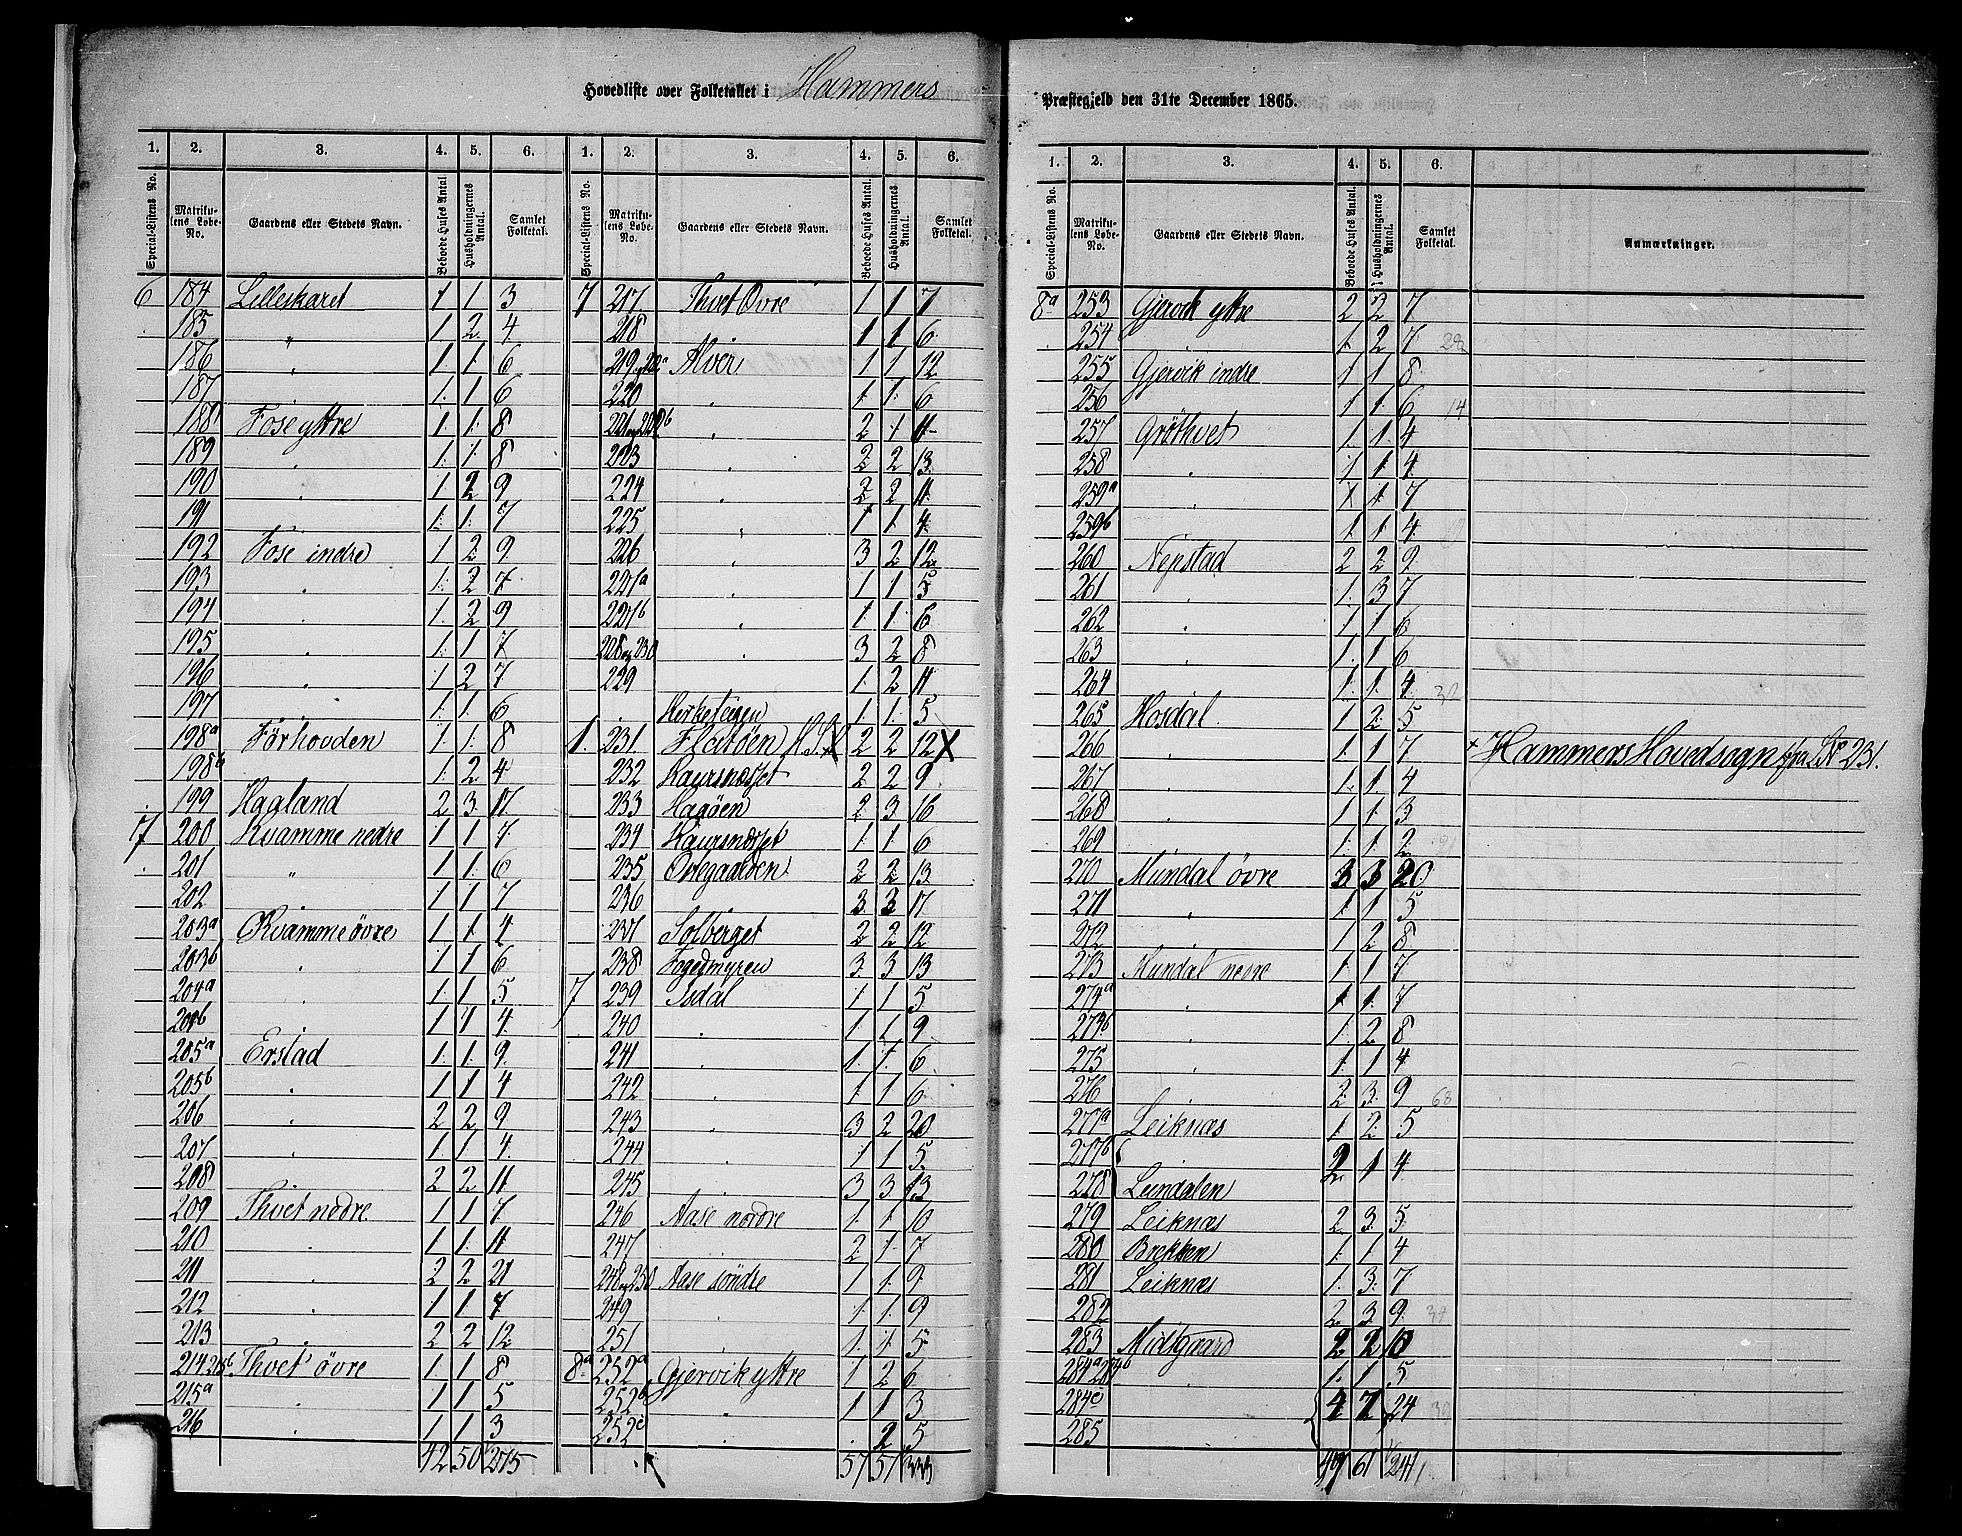 Hovedliste over Folketallet i Hammers Præstegjeld den 31te December 1865.
1. 2. 3. 4. 5. 6. 1. 2. 3. 4. 5. 6.
Special-Listens No. Matrikulens Løbe-No. Gaardens eller Stedets Navn. Beboede Huses Antal. Husholdningernes Antal. Samlet Folketal. Special-Listens No. Matrikulens Løbe-No. Gaardens eller Stedets Navn. Beboede Huses Antal. Husholdningernes Antal. Samlet Folketal.
6 184 Lilleskaret 1 1 3
185 " 1 2 4
186 " 1 1 6
187 1 1 6
188 Fose yttre 1 1 8
189 " 1 1 8
190 " 1 2 9
191 " 1 1 7
192 Fose indre 1 2 9
193 " 1 2 7
194 " 1 2 9
195 " 1 1 7
196 " 1 2 7
197 1 1 6
198a Førhovden 1 1 8
198b 1 2 4
199 Hagland 2 3 17
7 200 Kvamme nedre 1 1 7
201 " 1 1 6
202 1 1 7
203a Kvamme øvre 1 1 4
203b " 1 1 6
204a " 1 1 5
204b 1 1 4
205a Erstad 1 1 9
205b " 1 1 4
206 " 2 2 9
207 " 1 1 4
208 2 2 11
209 Thvet nedre 1 1 7
210 " 1 1 11
211 " 2 2 21
212 " 1 1 7
213 2 2 12
214 215b Thvet øvre 1 1 8
215a " 1 1 5
216 " 1 1 3
42 50 275
7 217 Thvet Øvre 1 1 7
218 1 1 6
219 Alver 1 1 12
220 " 1 1 6
221 " 2 1 11
223 " 2 2 13
224 2 2 11
225 " 1 1 4
226 " 3 2 12
227a 1 1 5
227b " 1 1 6
228 og 230 " 3 2 8
229 1 2 11
Kirketeigen 1 1 5
1. 231 Flatøen 2 2 12 X
232 Kaursnæsset 2 2 9
233 Hagøen 2 3 16
234 Kaursnæsset 1 1 6
235 Ostegaarden 2 2 13
236 3 3 17
237 Solberget 2 2 12
238 Fogedmyren 3 3 13
7 239 Isdal 1 1 5
240 " 1 1 9
241 1 1 6
242 " 1 1 6
243 " 3 2 20
244 " 1 1 5
245 3 3 13
246 Aase nordre 1 1 10
247 " 2 1 7
248 og 250 Aase søndre 1 1 9
249 1 1 9
251 " 1 1 5
8a 252a Gjervik yttre 1 2 6
252b " 1 1 3
252c " . 2 5
57 57 333
1. 2. 3. 4. 5. 6.
Special-Listens No. Matrikulens Løbe-No. Gaardens eller Stedets Navn. Beboede Huses Antal. Husholdningernes Antal. Samlet Folketal. Anmærkninger.
8a 253 Gjervik yttre 2 2 7
254 " 1 2 7 28
255 Gjervik indre 1 1 8
256 1 1 6 14
257 Grøthvet 1 1 4
258 " 1 1 4
259a " 1 1 7
259b 1 1 4
260 Nepstad 2 2 9
261 " 1 3 7
262 " 1 1 6
263 " 1 1 6
264 1 1 4 32
265 Hosdal 1 2 5
266 " 1 1 7 + Hammers Hovedsogn fra LNr 231.
267 " 1 1 4
268 " 1 1 3
269 1 1 2 21
270 Mundal øvre 3 3 20
271 " 1 1 5
272 1 2 8
273 Mundal nedre 1 1 7
274a " 1 1 7
274b " 1 2 8
275 " 1 1 4
276 2 3 9 68
277a Leiknæs 1 2 5
277b " 2 1 4
278 Leindalen
279 Leiknæs 2 3 5
280 Brekken 1 1 4
281 Leiknæs 1 3 7
282 2 3 9 34
283 Midtgaard 2 2 10
284a 284b " 1 1 5
284c 4 7 24
285
49 61 241